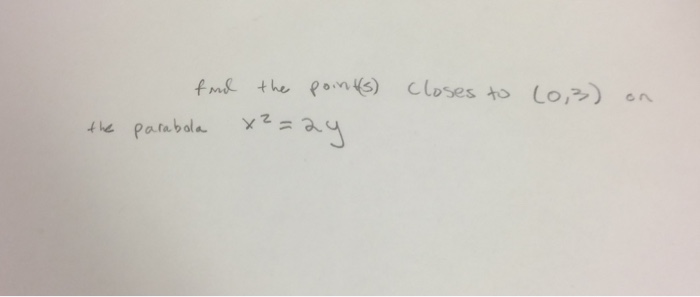 find the point(s) closes to (0,3) on
the parabola x² = 2y